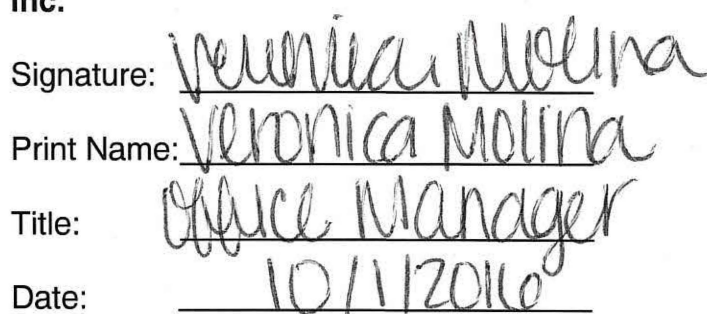 Inc.
Signature: Veronica Molina
Print Name: Veronica Molina
Title: Office Manager
Date: 10/1/2016